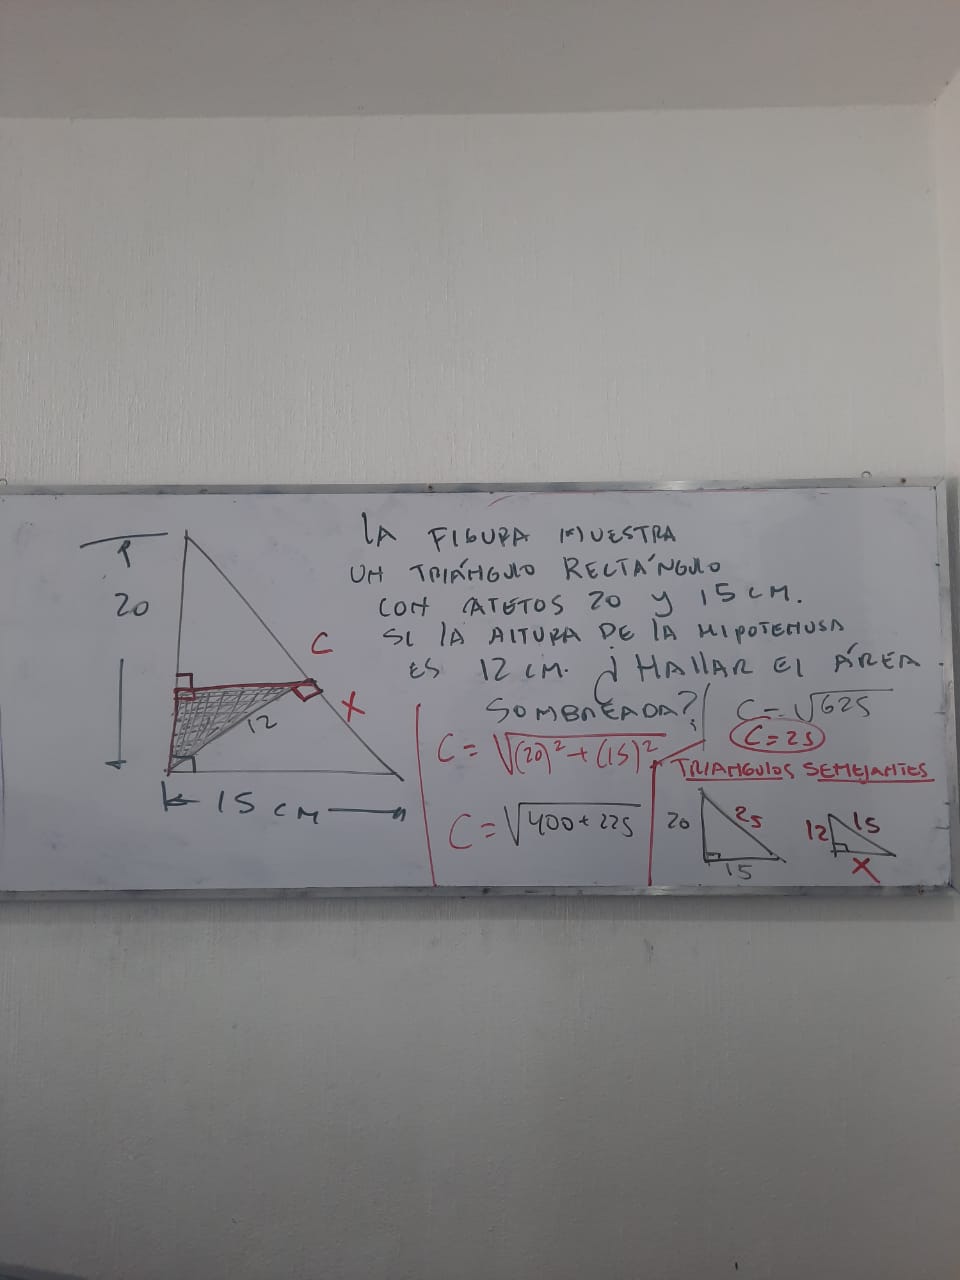 LA FIGURA MUESTRA
UN TRIÁNGULO RECTÁNGULO
CON CATETOS 20 Y 15 CM.
SI LA ALTURA DE LA HIPOTENUSA
ES 12 CM. ¿HALLAR EL ÁREA
SOMBREADA?
20
C
X
12
15 CM
C = √(20)² + (15)²
C = √400 + 225
C = √625
C = 25
TRIANGULOS SEMEJANTES
20
25
15
12
15
X